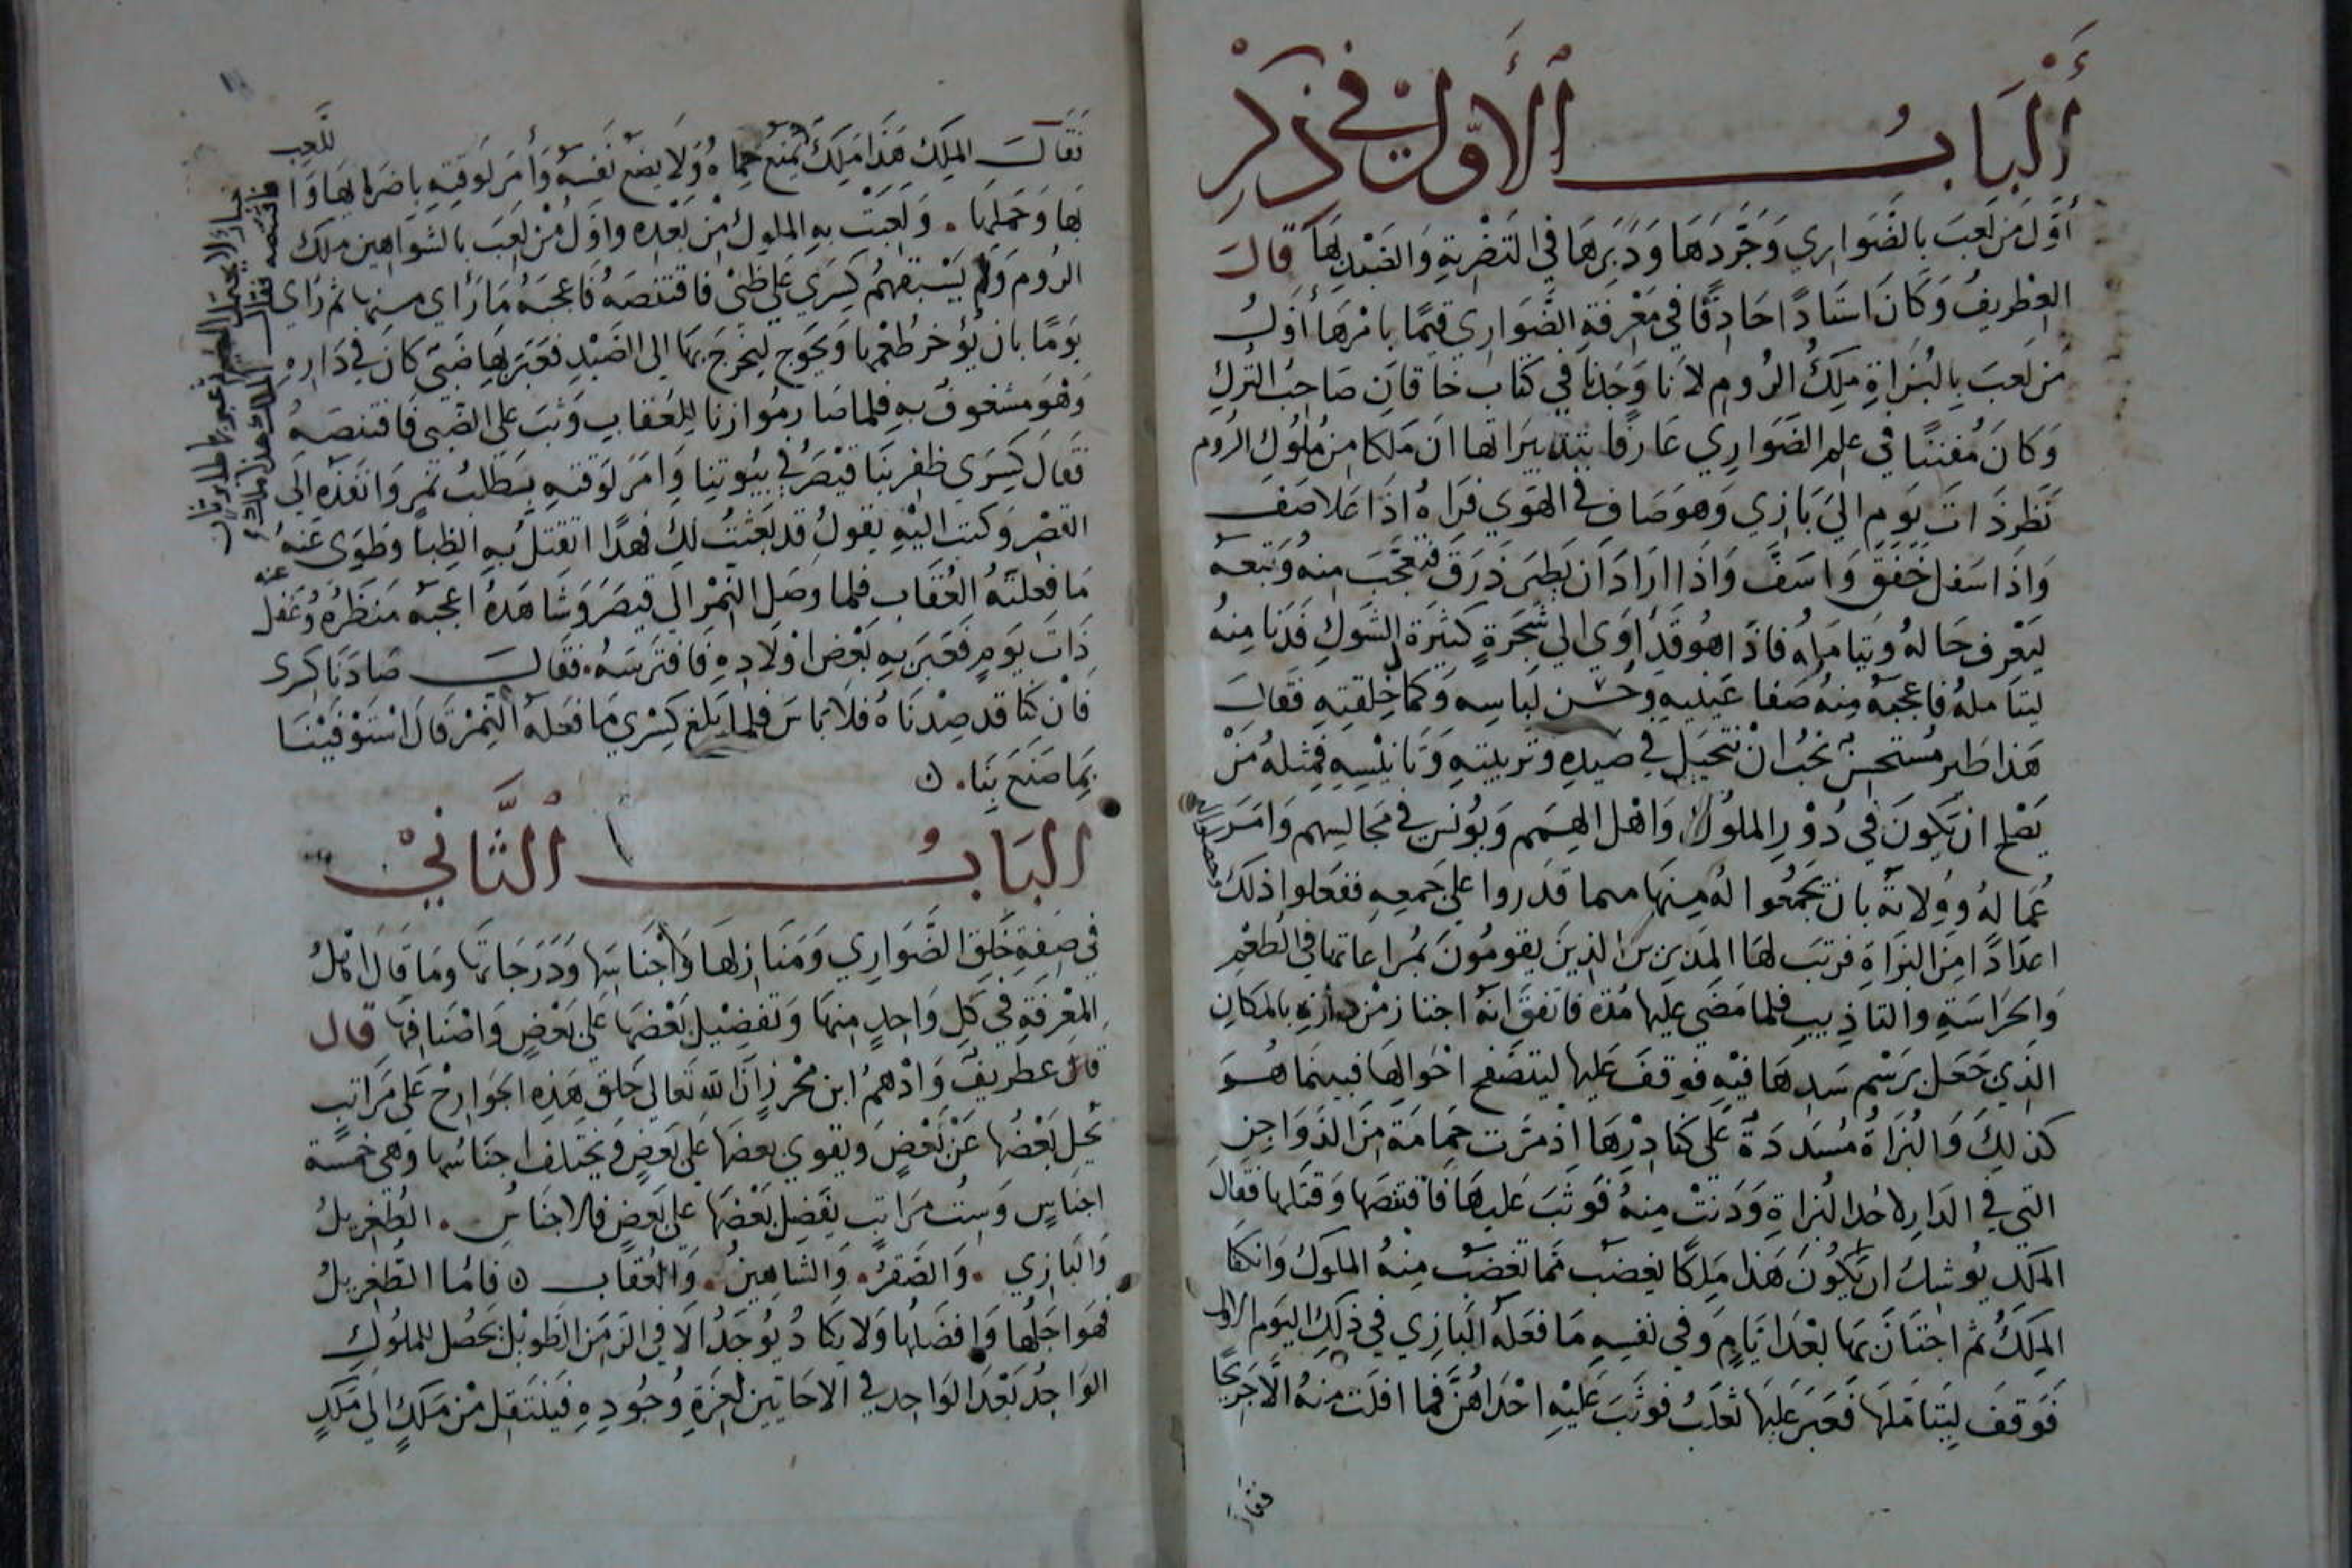 أَلْبَابُ ٱلْأَوَّلُ فِي ذِكْرِ
أَوَّل مَن لَعِبَ بِالضَّوَارِي وَجَّرَدَهَا وَدَبَرِهَا فِي التَضْرِيةِ وَالصَيْدِ بِهَا قَالَ
الغِطْرِيفُ وَكَانَ اسْتَادًا حَادِقًا فِي مَعْرِفَةِ الضَّوَارِي قيمًا بامْرِهَا أَوَّلُ
مَن لَعبَ بِالبُزَاةِ مَلِكُ الرُوم لاَنا وَجَدْنَا فِي كِتَاب خَاقَانِ صَاحِبُ التُرْكِ
وَكَانَ مُفَنِنًا فِي عِلْمِ الضَوَارِي عَارِفًا بتدبيرَاتها انَ مَلكا مِن مُلُوكِ الرُوم
نَظَر ذَاتَ يَوم اليَ بَازِي وَهوَ صَافٍ فِي الهَوي فَرَاهُ اذَا عَلا صَفَ
وَاذَا سَفل خَفَقَ وَاسَفَّ وَاذَا ارَادَ ان يَطِيرَ ذَرَقَ فتعجَّبَ مِنهُ وَتَبِعَهُ
ليَعْرِف حَالهُ وَيتَامَلهُ فَاذَا هُو قَدْ اوَي الي شَجَرةٍ كَثِيرَة الشَوكِ فَدَنَا مِنهُ
ليتَامَلهُ فاعجَبَهُ مِنهُ صَفا عَينيهِ وحُسْن لِبَاسِه وَكَمَا خِلقتِهِ فَقَالَ
هَذا طَير مُستَحسَن يَجبُ انْ نتحَيَل فِي صَيدِهِ وَتربيتِهِ وَتَانيْسِهِ فَمثلهُ مَنْ
يَصْلح ان يَكونَ فِي دُوْرِ الملُوك وَاهْل الهِمَم وَيُونس فِي مَجَالِسِهم وَامَرَ
عُمَالهُ وَوِلاتهُ بان يَجمَعُوا لهُ مِنهَا مهما قدَروا عَلي جَمعِهِ ففعَلوا ذلكَ
وحصلوا له
اعدَادًا مِن البزَاةِ فرتبَ لهَا المدَبرين الذِينَ يقومُونَ بمُراعَاتها فِي الطعْم
وَالحَرَاسَةِ والتاذِيبِ فلما مَضَي عليهَا مُدة فاتفَقَ انهُ اجتاز مْن دَارِهِ بالمكَانِ
الذِي جَعَل بِرَسْم سَدها فيْهِ فوقفَ عَليها ليتصَفح احْوالها فبينَما هُوَ
كذلِكَ وَالبُزَاةُ مُسَدَدَة عَلي كَنادِرْهَا اذْ مَرَت حَمَامَة مِنَ الدَوَاجِن
التي فِي الدَارِ لاحَد البُزاةِ وَدَنَتْ مِنهُ فَوثبَ عَليهَا فَاقتنصَها وَقتلها فقَالَ
المَلك يُوشكُ ان يكُونَ هَذا مَلِكًا يغضبُ مَما تغضبُ مِنهُ الملوكُ وَانكفَا
المِلكُ ثم اجتَازَ بهَا بعْدَ ايَامٍ وَفي نفسِهِ مَا فعَلهُ البَازِي فِي ذلِكَ اليَوم الاول
فَوَقفَ لِيَتَامَلهَا فَعَبَر عَليهَا ثعلبُ فوثبَ عَليْهِ احْدَاهنَّ فَما افلت مِنهُ الّا جَرِيحًا
فقال
فَقَالَ الملِكَ هَذَا مَلِكَ يَمنَع حِمَاهُ وَلا يضَع نَفسَهُ وَأمَر لَوقتِهِ باضرَابِهَا وَا للَّعِب
بهَا وَحَملهَا . وَلَعِبَتْ بهِ الملوك مِن بَعْدِه وَاوَل مْن لعبَ بالشَوَاهِين مَلِك
الرُوم وَلم يَسْبقهُم كِسرَي عَلي ظبيْ فاقتنصَهُ فَاعجَبَهُ مَا رَأي مِنها ثم رَأي
يَومًا بان يُؤخر طُعْمهَا وَيَجوع ليخرجَ بهَا الي الصَيْدِ فعَبَر بهَا ضَبيَ كانَ فِي دَارِهِ
وَهْوَ مَشغوفُ بهِ فلما صَار مُوازنا لِلعُقابِ وَثبَ عَلي الضَبي فَاقتنصَهُ
فقَالَ كِسْرَي ظفر بنَا قيْصَرُ فِي بيُوتِنا وَامَر لوقتِهِ بطلب نمِرٍ وَانفذه الي
القصْرِ وَكتبَ اليْهِ يقولُ قد بَعثتُ لكَ فهدًا اتقتل بهِ الظبا وَطَوَي عَنهُ
مَا فعلتهُ العُقَاب فلما وَصَل النمْر الي قيصَر وَشاهَدهُ اعجبَهُ مَنظرُهُ وَغَفل عنه
ذَاتَ يَومٍ فعَبَر بهِ بَعْض اوْلادِهِ فَافتَرسَهُ . فقَالَ صَادَنا كِسرَى
فانْ كنا قد صِدْنَاهُ فلا باسَ فلما بَلغ كِسْرَي مَا فعَلهُ النمْر قال اسْتَوْفينَا
بمَا صَنعَ بنَا . ه
البَابُ ٱلثَّانِيْ
فِي صِفةِ خَلِق الضَّوارِي وَمَنازلهَا وَاجْنَاسِهَا وَدَرَجَاتهَا وَمَا قَال اهْلُ
المعْرِفَةِ في كلِ وَاحِدٍ مِنهَا وَتفضِيْل بَعْضهَا عَلي بَعْضٍ وَاصْنَافِهَا قَالَ
قال غطرِيف وَادْهَمُ ابن مُحْرز انَ اللهَ تعَالي خَلقَ هَذِهِ الجَوارِحْ عَلي مَرَاتِبِ
يَجل بَعْضُهَا عَنْ بَعْضٍ وَيقوي بعضهَا عَلي بَعضٍ وَيختلف اجنَاسُها وَهي خمسَة
اجنَاسٍ وَسِتُ مَرَاتب يفَضِل بَعْضهَا عَلي بَعضٍ فالاجنَاسُ . الطُغرِيلُ
وَالبَازِي . وَالصَقرُ . وَالشاهِينُ . وَالعُقاب ه فَامَا الطُغرِيلُ
فهوَ اجَلهَا وَافضَلهَا وَلا يكَادُ يُوجَدُ الا فِي الزَمَن الطَوِيْل يحصُل للملُوكِ
الوَاحِدُ بَعْدَ الوَاحِدِ فِي الاحَايين لعزةِ وُجُودِهِ فيَنتقل مْن مَلكٍ الي مَلكٍ